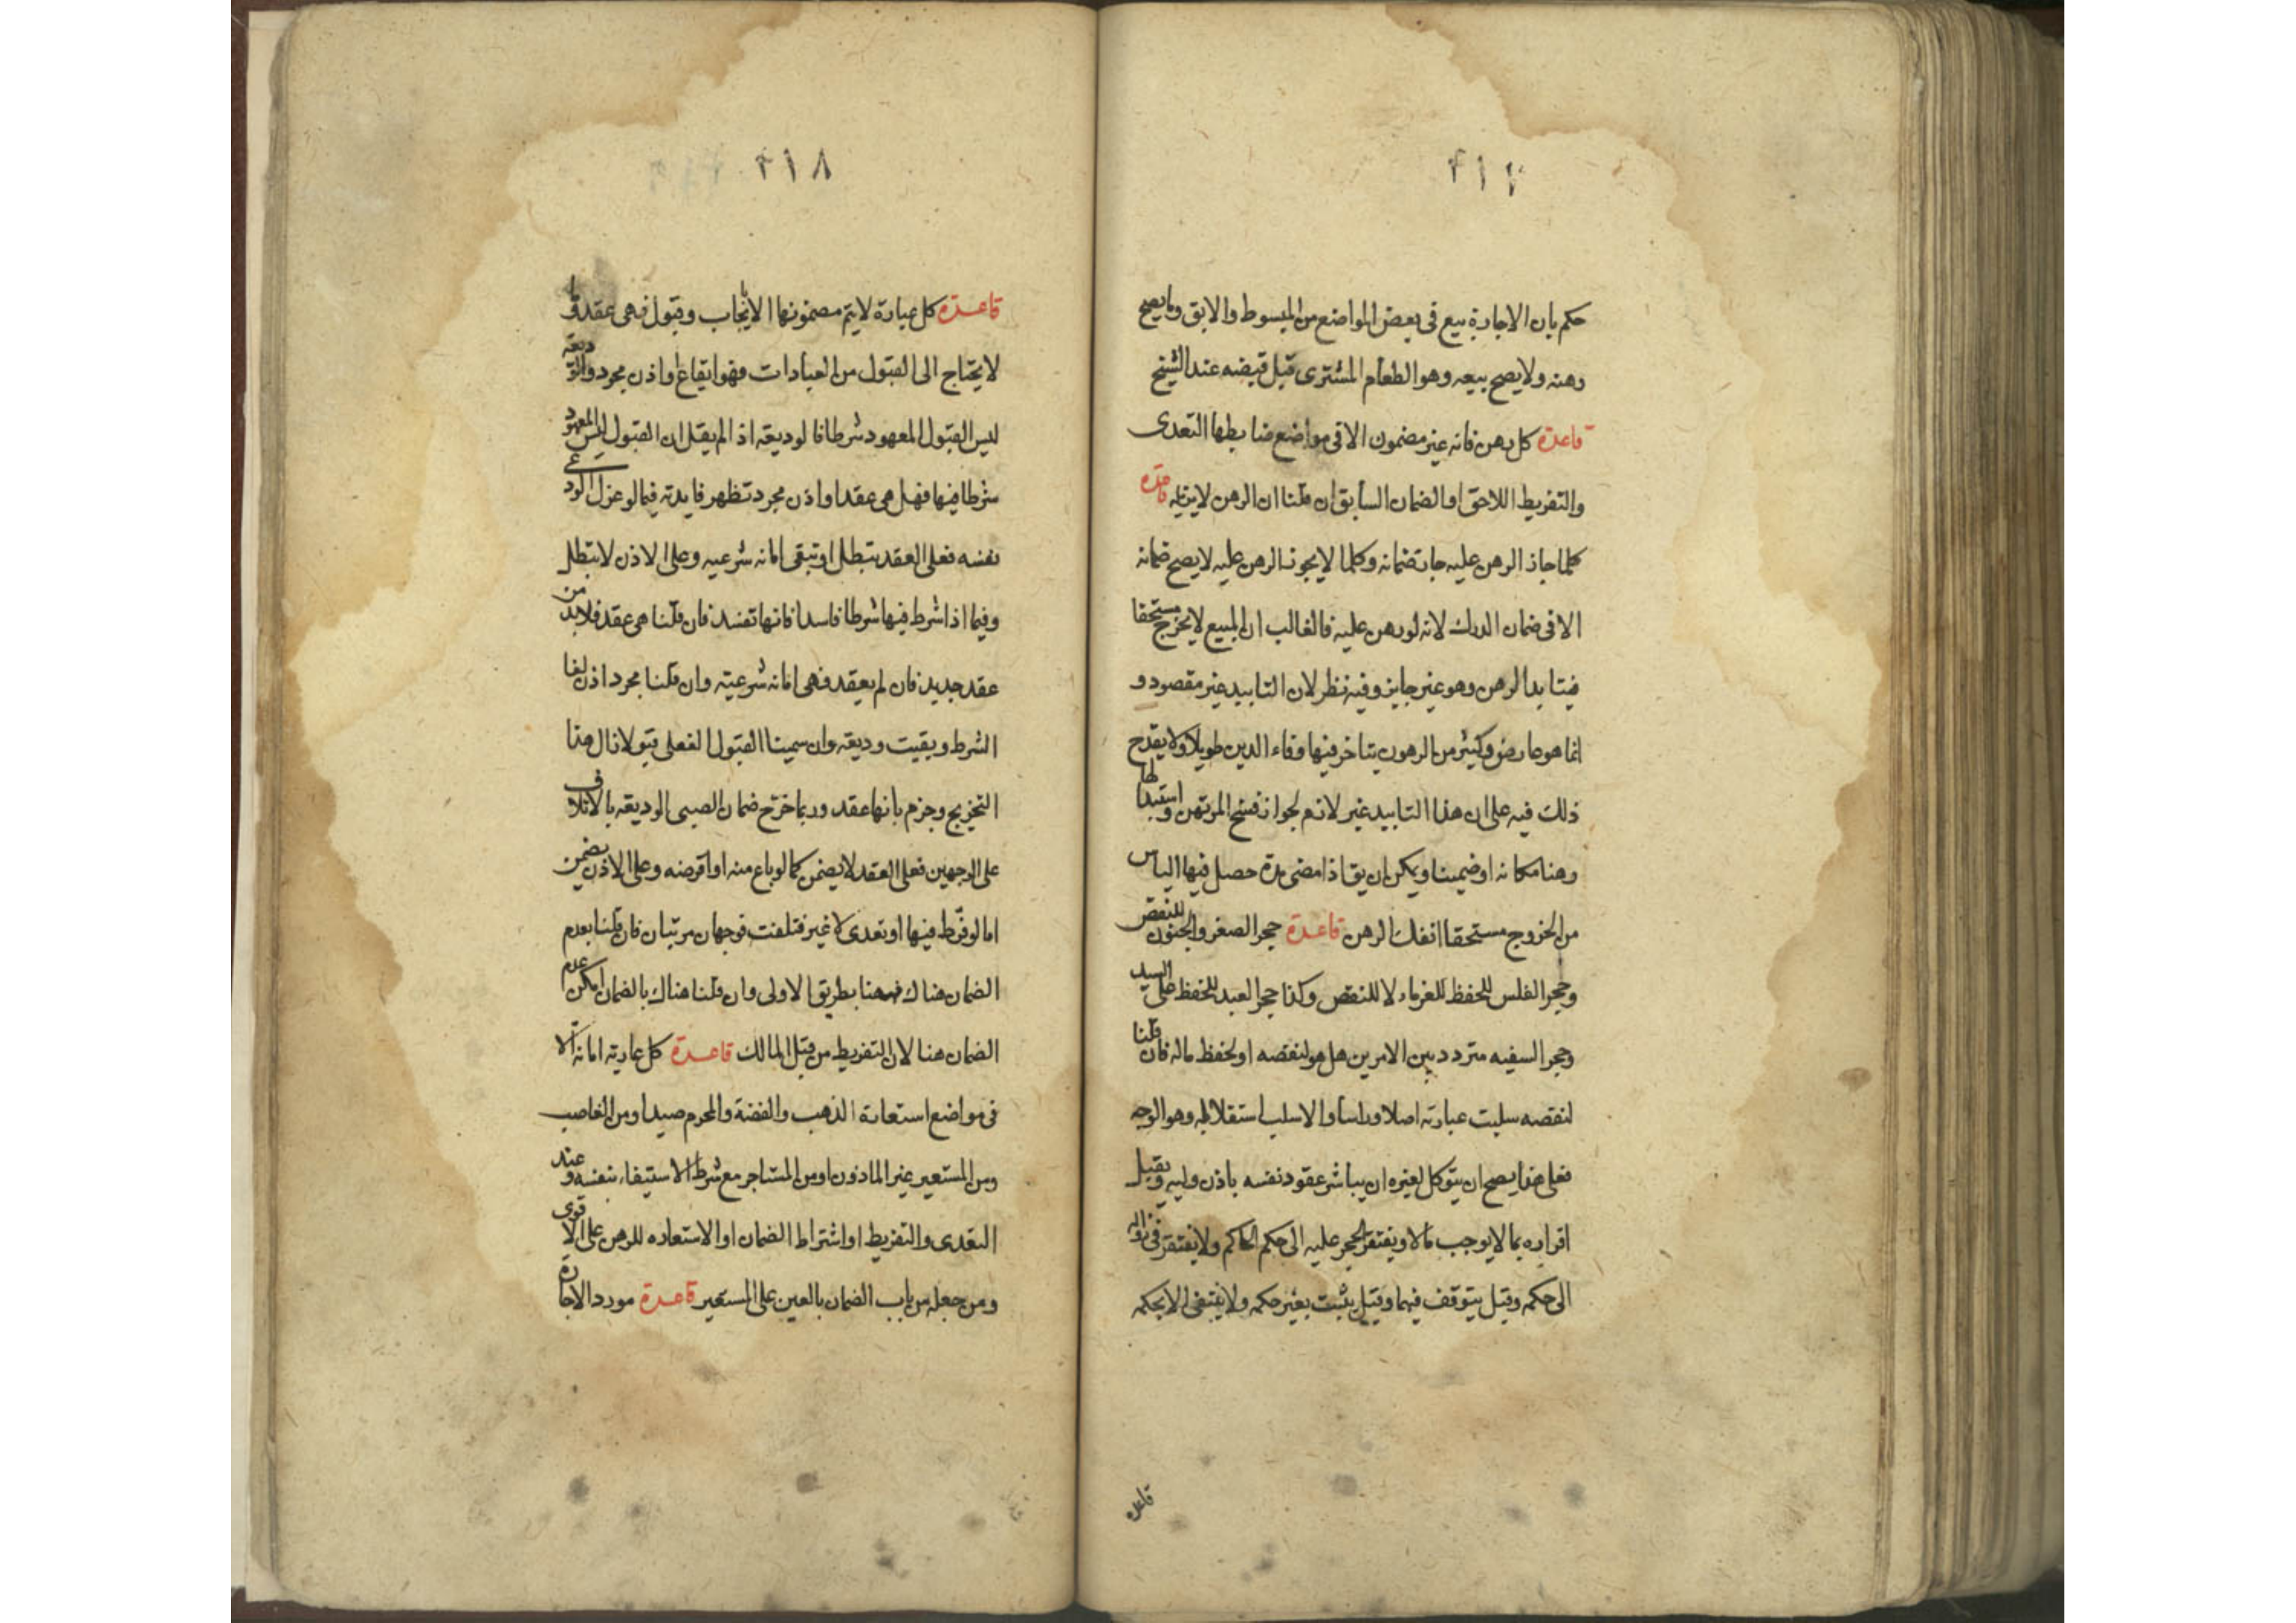 ٢١٧
حكم بان الاجارة بيع فى بعض المواضع من المبسوط والابق ومما يصح
رهنه ولا يصح بيعه وهو الطعام المشترى قبل قبضه عند الشيخ
قاعدة كل رهن فانه غير مضمون الا فى مواضع ضابطها التعدى
والتفريط اللاحق او الضمان السابق ان قلنا ان الرهن لا يزيله قاعدة
كلما جاز الرهن عليه جاز ضمانه وكلما لا يجوز الرهن عليه لا يصح ضمانه
الا فى ضمان الدرك لانه لو رهن عليه فالغالب ان المبيع لا يخرج مستحقا
فيتابد الرهن وهو غير جايز وفيه نظر لان التابيد غير مقصود و
انما هو عارض وكثير من الرهون يتاخر فيها وفاء الدين طويلا ولا يقدح
ذلك فيه على ان هذا التابيد غير لازم لجواز فسخ المرتهن واستبدالها
رهنا مكانه او ضمينا ويمكن ان يق اذا مضى مدة حصل فيها الياس
من الخروج مستحقا انفك الرهن قاعدة حجر الصغر والجنون للنقص
وحجر الفلس للحفظ للغرماء لا للنقص وكذا حجر العبد للحفظ على السيد
وحجر السفيه متردد بين الامرين هل هو لنقصه او لحفظ ماله فان قلنا
لنقصه سلبت عبارته اصلا وراسا والا سلب استقلاله وهو الوجه
فعلى هذا يصح ان يتوكل لغيره ان يباشر عقود نفسه باذن وليه ويقبل
اقراره بما لا يوجب مالا ويفتقر الحجر عليه الى حكم الحاكم ولا يفتقر فى زواله
الى حكمه وقيل يتوقف فيهما وقيل يثبت بغير حكمه ولا ينتفى الا بحكمه
قاعدة
٢١٨
قاعدة كل عبارة لا يتم مضمونها الا بايجاب وقبول فهى عقد وما
لا يحتاج الى القبول من العبارات فهو ايقاع واذن مجرد والوديعه
ليس القبول المعهود شرطا فالوديعه اذا لم يقل ان القبول ليس المعهود
شرطا فيها فهل هى عقد او اذن مجرد تظهر فايدته فيما لو عزل الودعى
نفسه فعلى العقد تبطل او تبقى امانه شرعيه وعلى الاذن لا تبطل
وفيما اذا شرط فيها شرطا فاسدا فانها تفسد فان قلنا هى عقد فلابد من
عقد جديد فان لم يعقد فهى امانه شرعيته وان قلنا مجرد اذن لغا
الشرط وبقيت وديعه وان سمينا القبول الفعلى قبولا زال هذا
التخريج وجزم بانها عقد وربما خرّج ضمان الصبى الوديعه بالاتلاف
على الوجهين فعلى العقد لا يضمن كما لو باع منه او اقرضه وعلى الاذن يضمن
اما لو فرّط فيها او تعدى لا غير فتلفت فوجهان مرتبان فان قلنا بعدم
الضمان هناك فههنا بطريق الاولى وان قلنا هناك بالضمان امكن عدم
الضمان هنا لان التفريط من قبل المالك قاعدة كل عاريته امانه الا
فى مواضع استعارة الذهب والفضة والمحرم صيدا ومن الغاصب
ومن المستعير غير الماذون او من المستاجر مع شرط الاستيفاء بنفسه وعند
التعدى والتفريط او اشتراط الضمان او الاستعاره للرهن على الاقوى
ومن جعله من باب الضمان بالعين على المستعير قاعدة مورد الاجارة